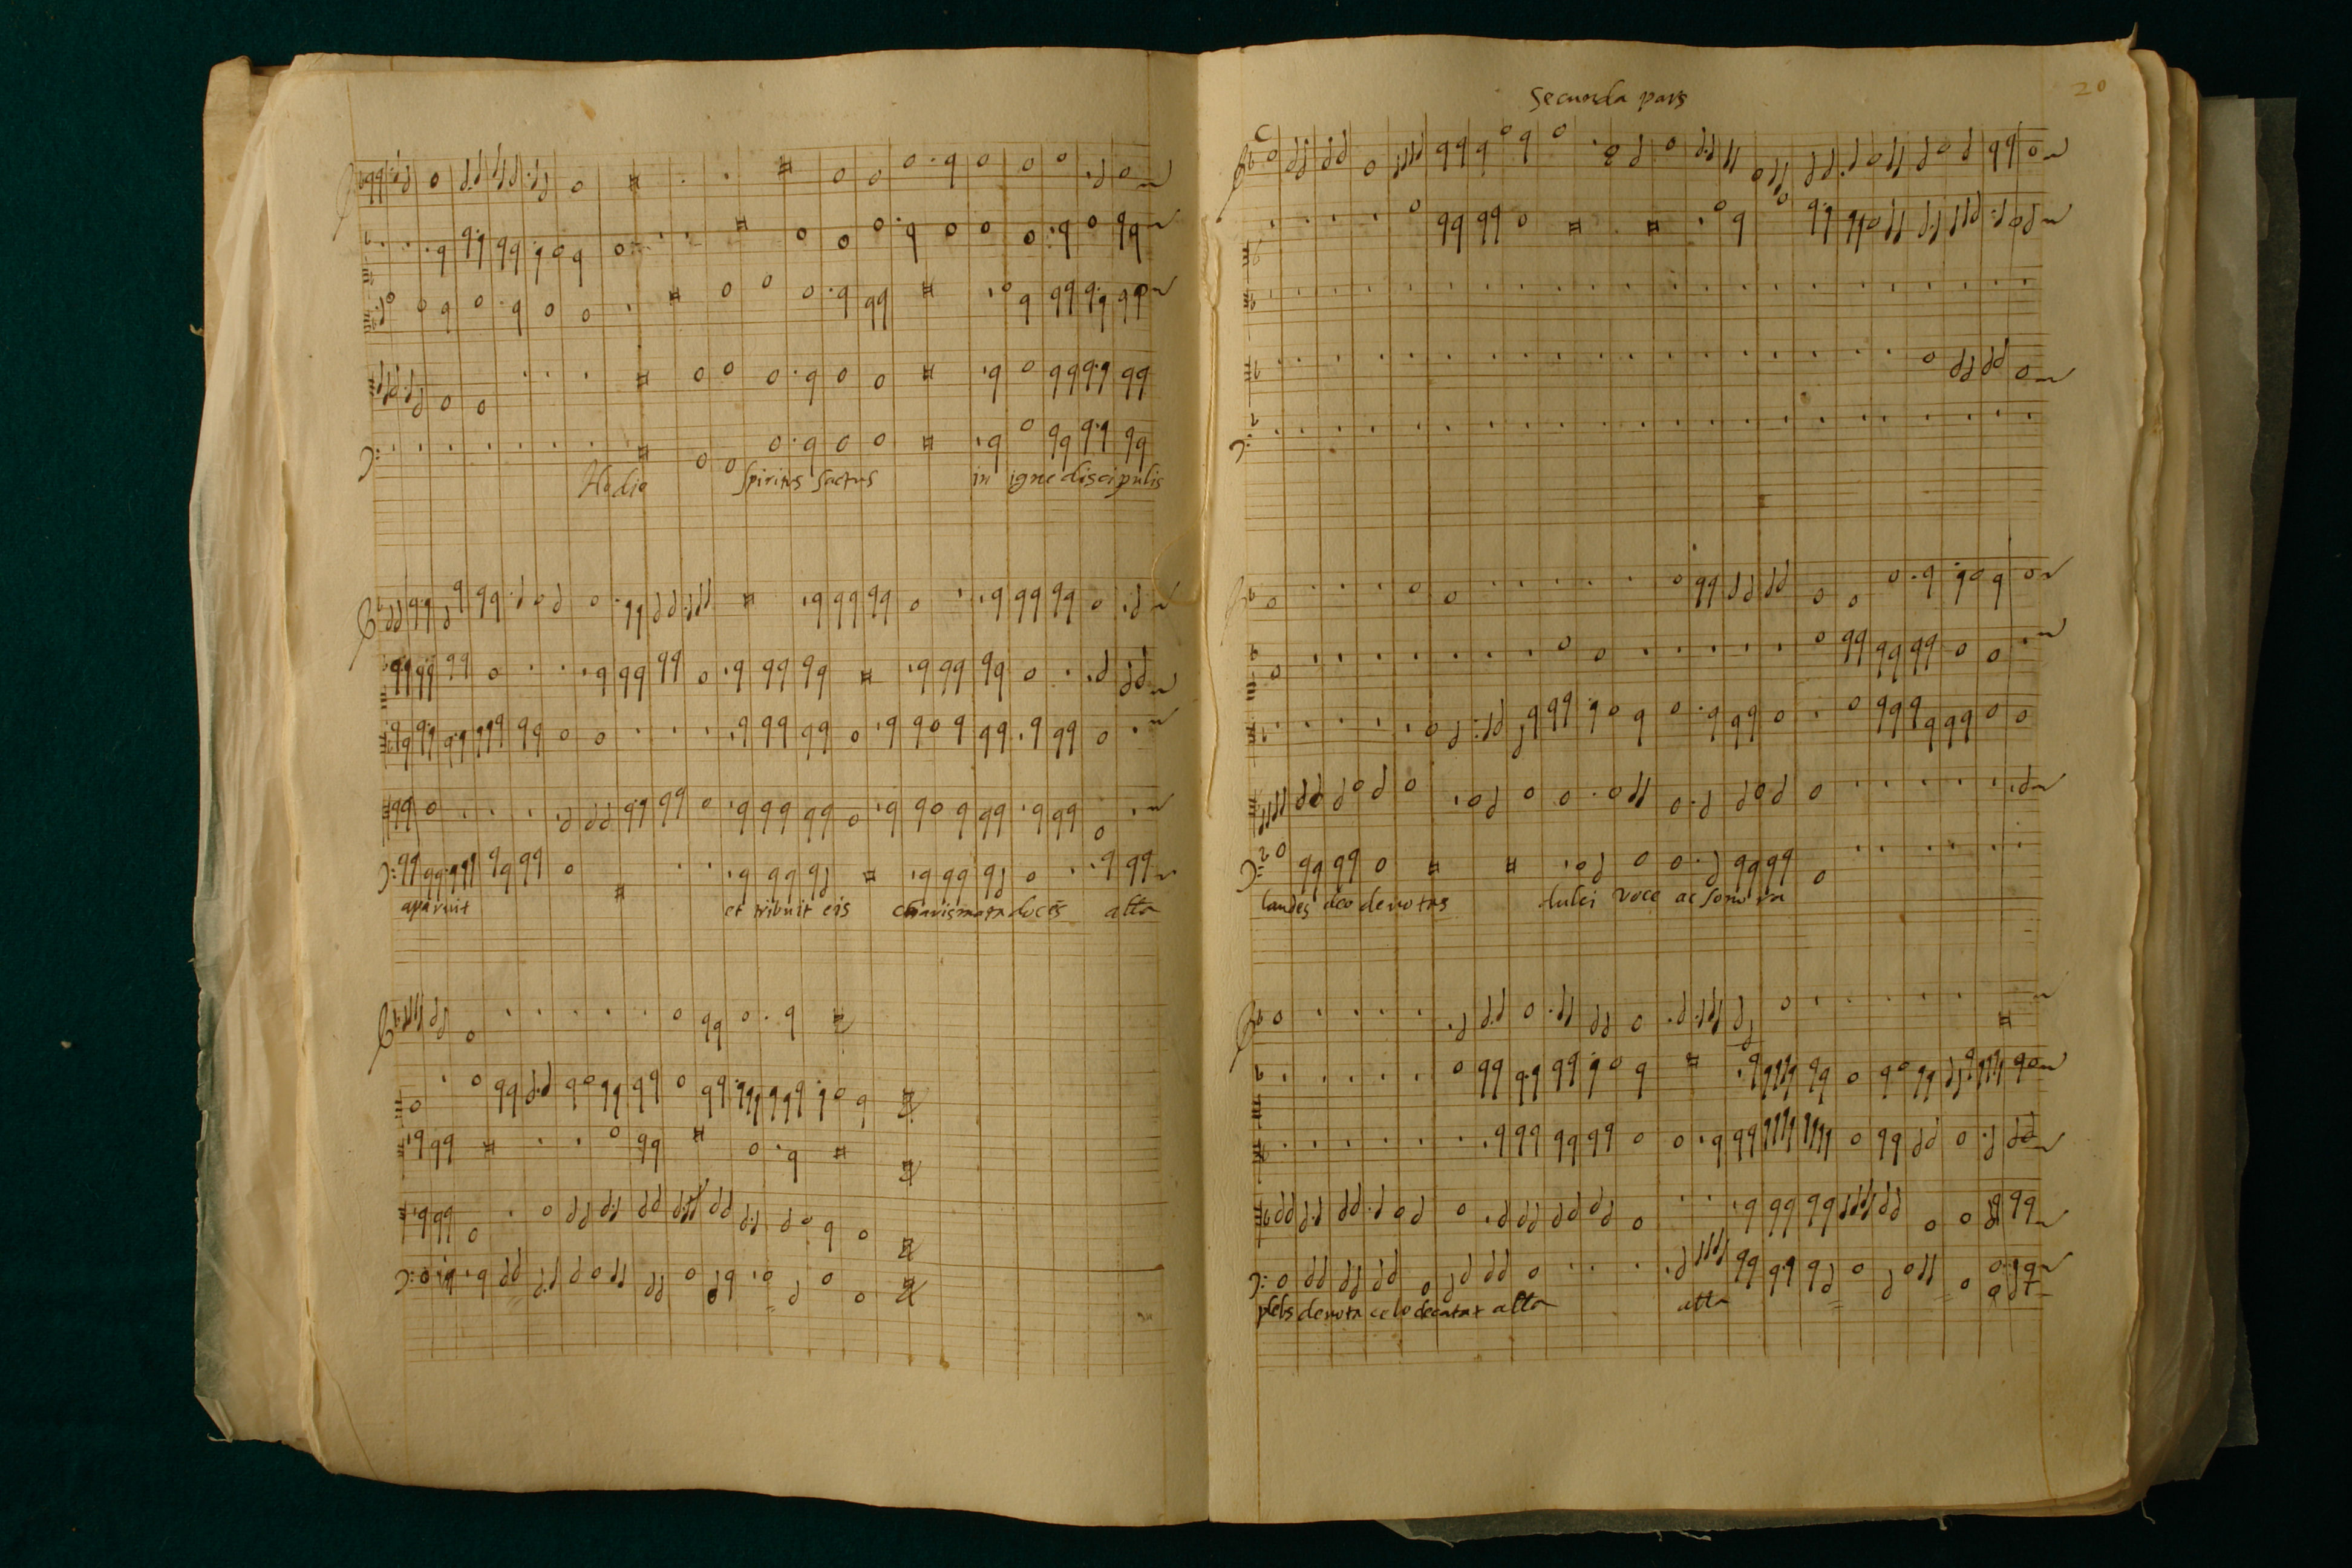 Hodie Spiritus Sactus in igne discipulis
aparuit et tribuit eis charismata docēs alta
20
Secunda pars
laudes deo devotas dulci voce ac sonora
plebs devota celo decatat alta alta